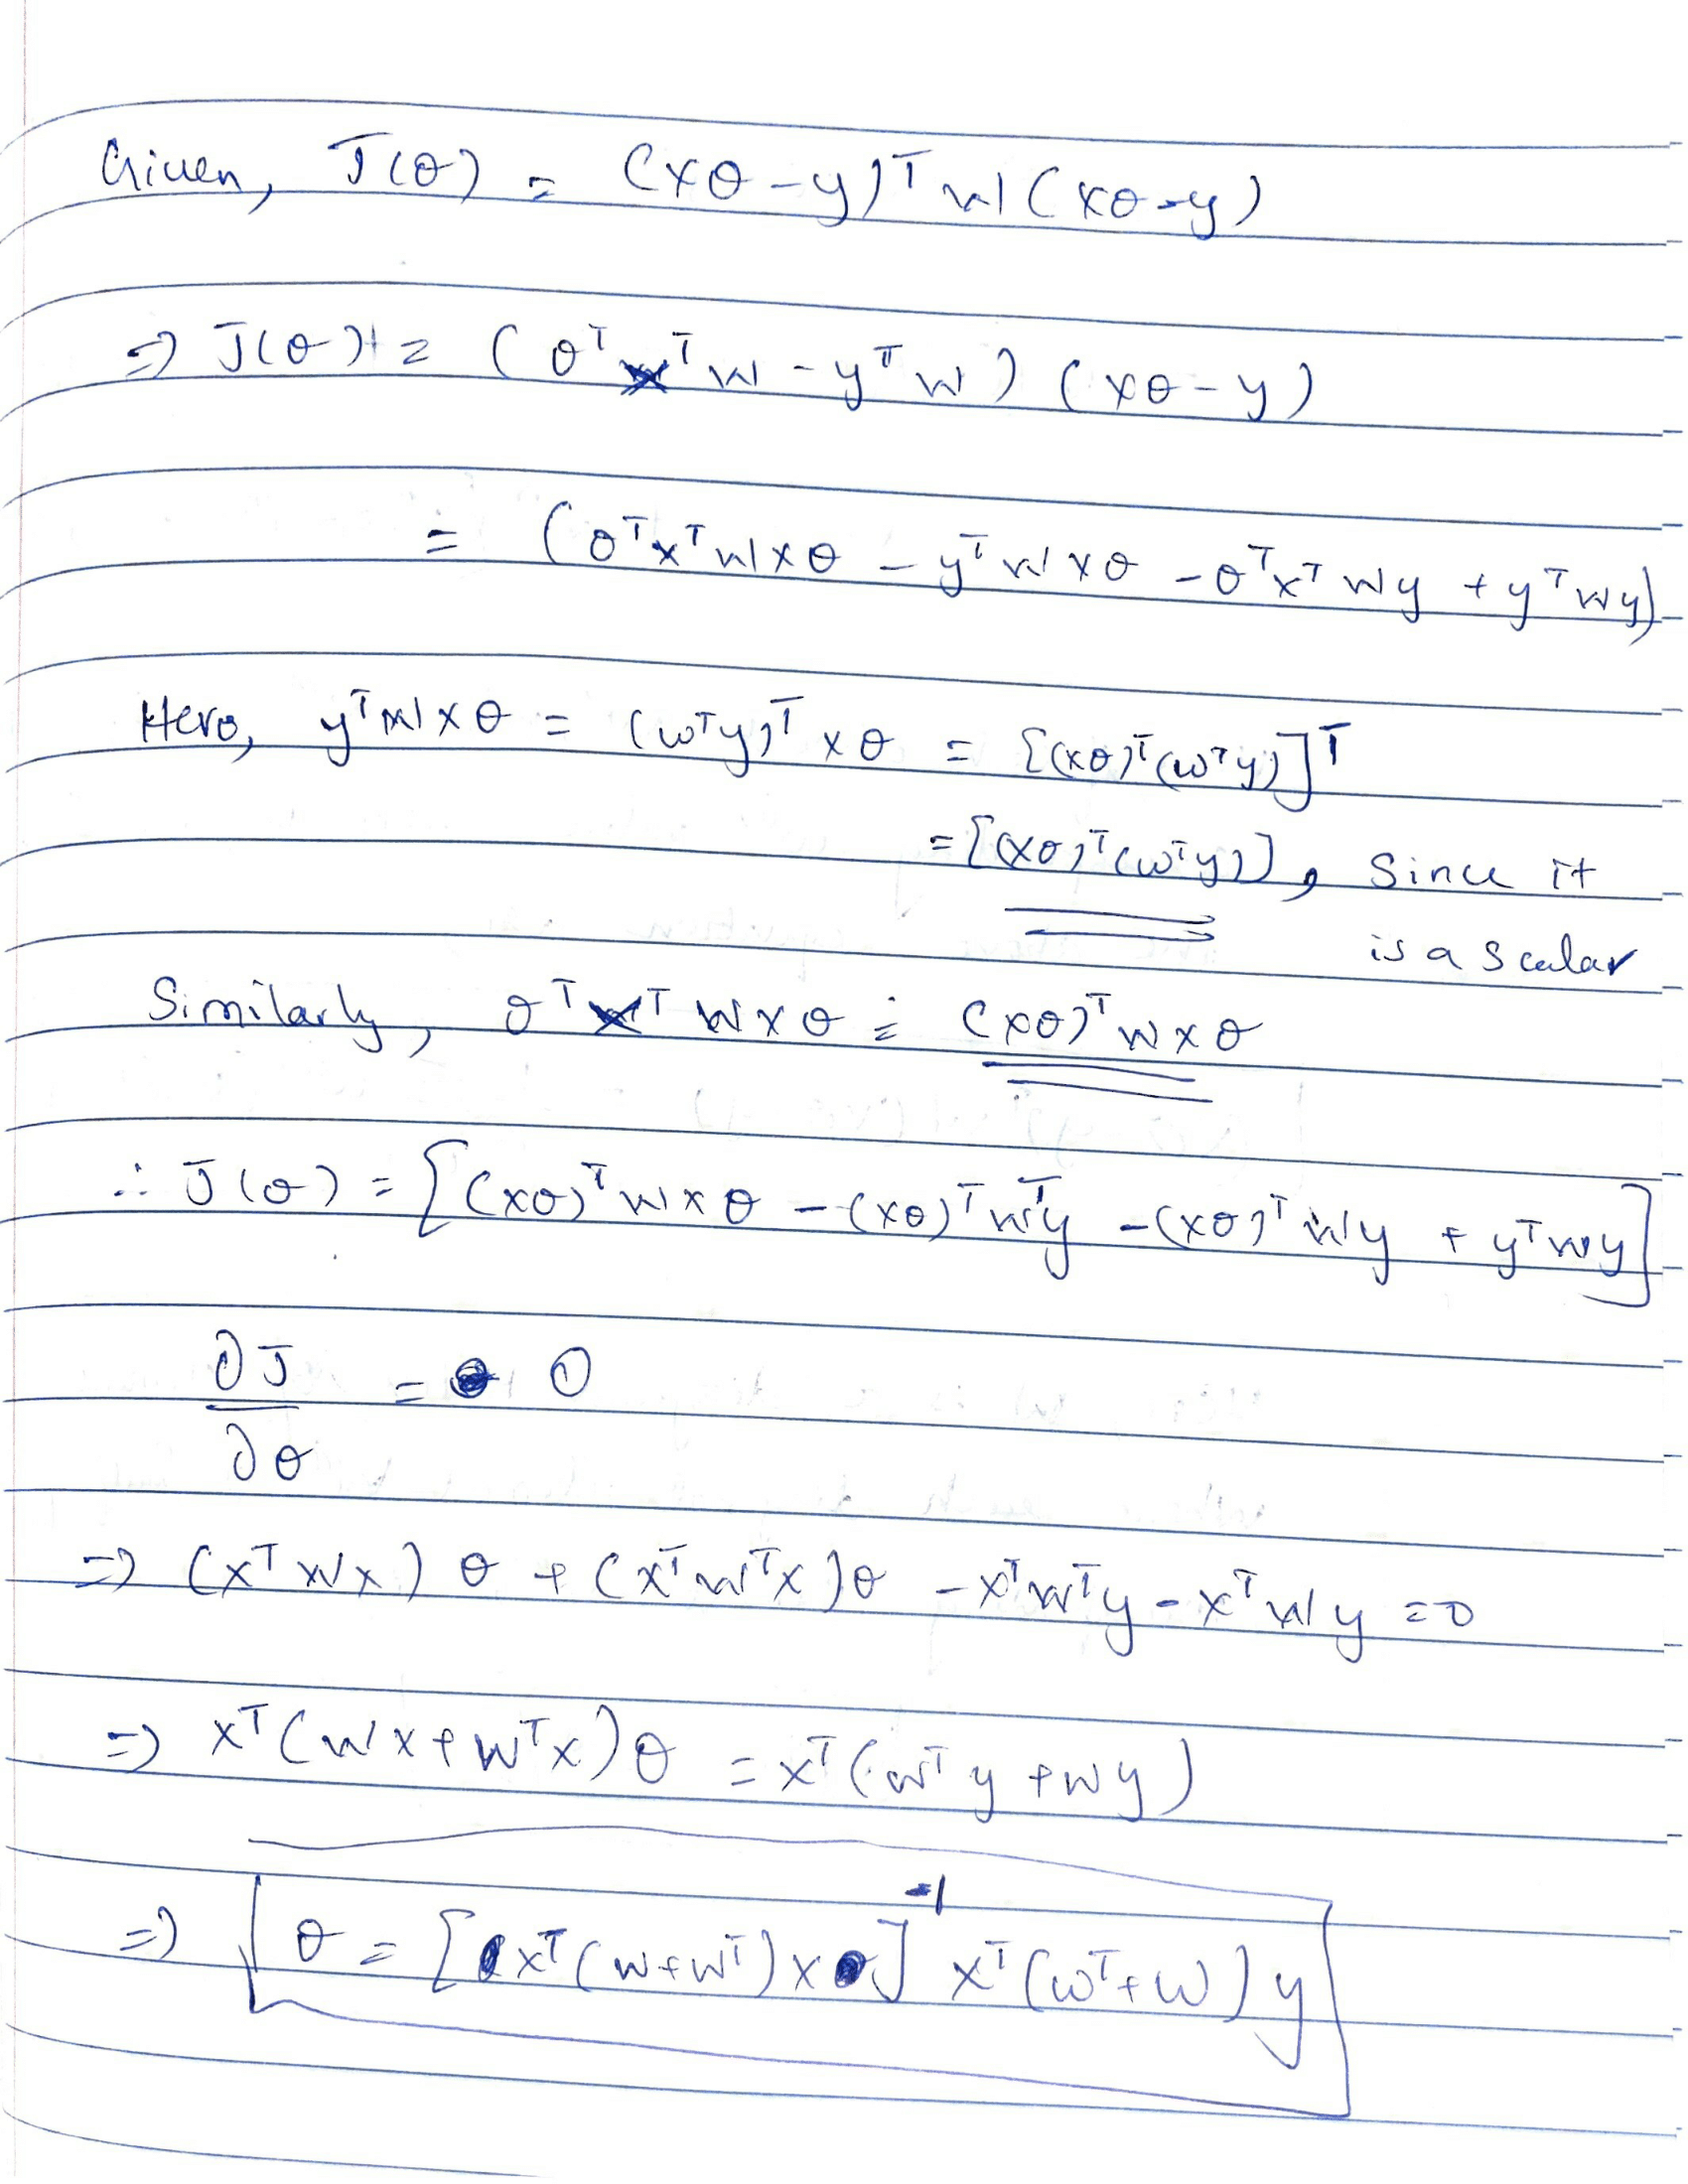 Given, J(θ) = (Xθ - y)ᵀ W (Xθ - y)
⇒ J(θ) = (θᵀXᵀW - yᵀW) (Xθ - y)
= (θᵀXᵀWXθ - yᵀWXθ - θᵀXᵀWy + yᵀWy)
Here, yᵀWXθ = (Wᵀy)ᵀ Xθ = [(Xθ)ᵀ(Wᵀy)]ᵀ
= [(Xθ)ᵀ(Wᵀy)], Since it
is a scalar
Similarly, θᵀXᵀWXθ = (Xθ)ᵀWXθ
∴ J(θ) = [(Xθ)ᵀWXθ - (Xθ)ᵀWᵀy - (Xθ)ᵀWy + yᵀWy]
∂J/∂θ = 0
⇒ (XᵀWX)θ + (XᵀWᵀX)θ - XᵀWᵀy - XᵀWy = 0
⇒ Xᵀ(WX + WᵀX)θ = Xᵀ(Wᵀy + Wy)
⇒ θ = [Xᵀ(W + Wᵀ)X]⁻¹ Xᵀ(Wᵀ + W)y